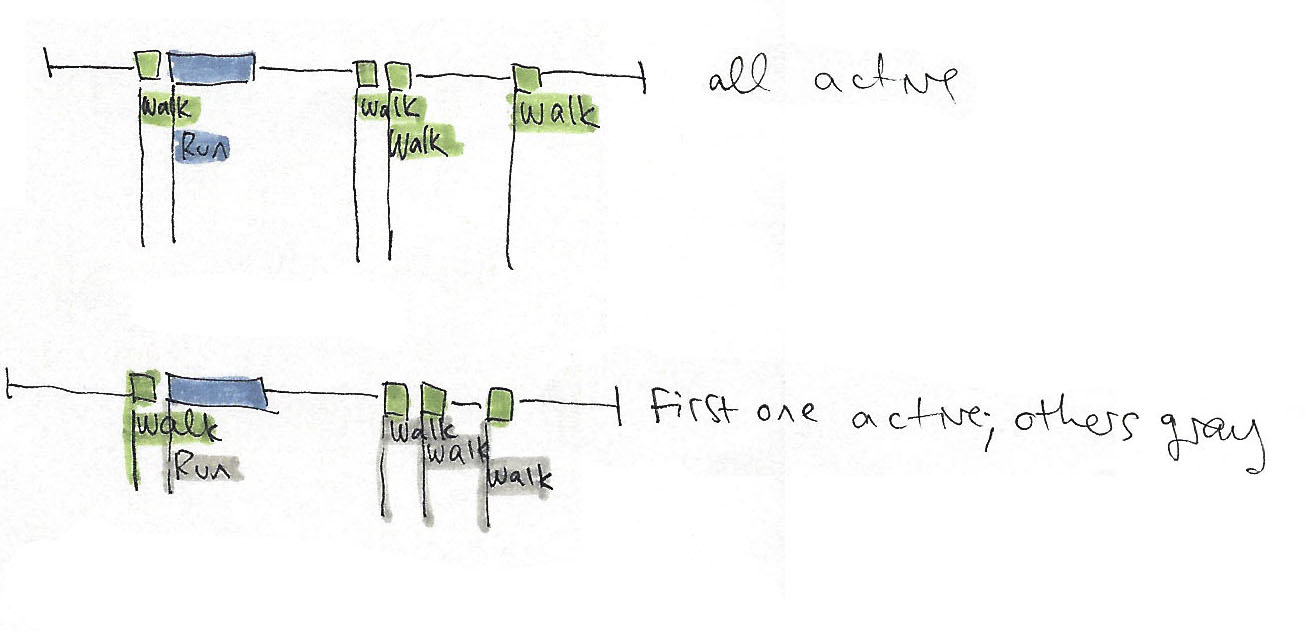 all active
Walk
Walk
Walk
Run
Walk
First one active; others gray
Walk
Walk
Walk
Run
Walk